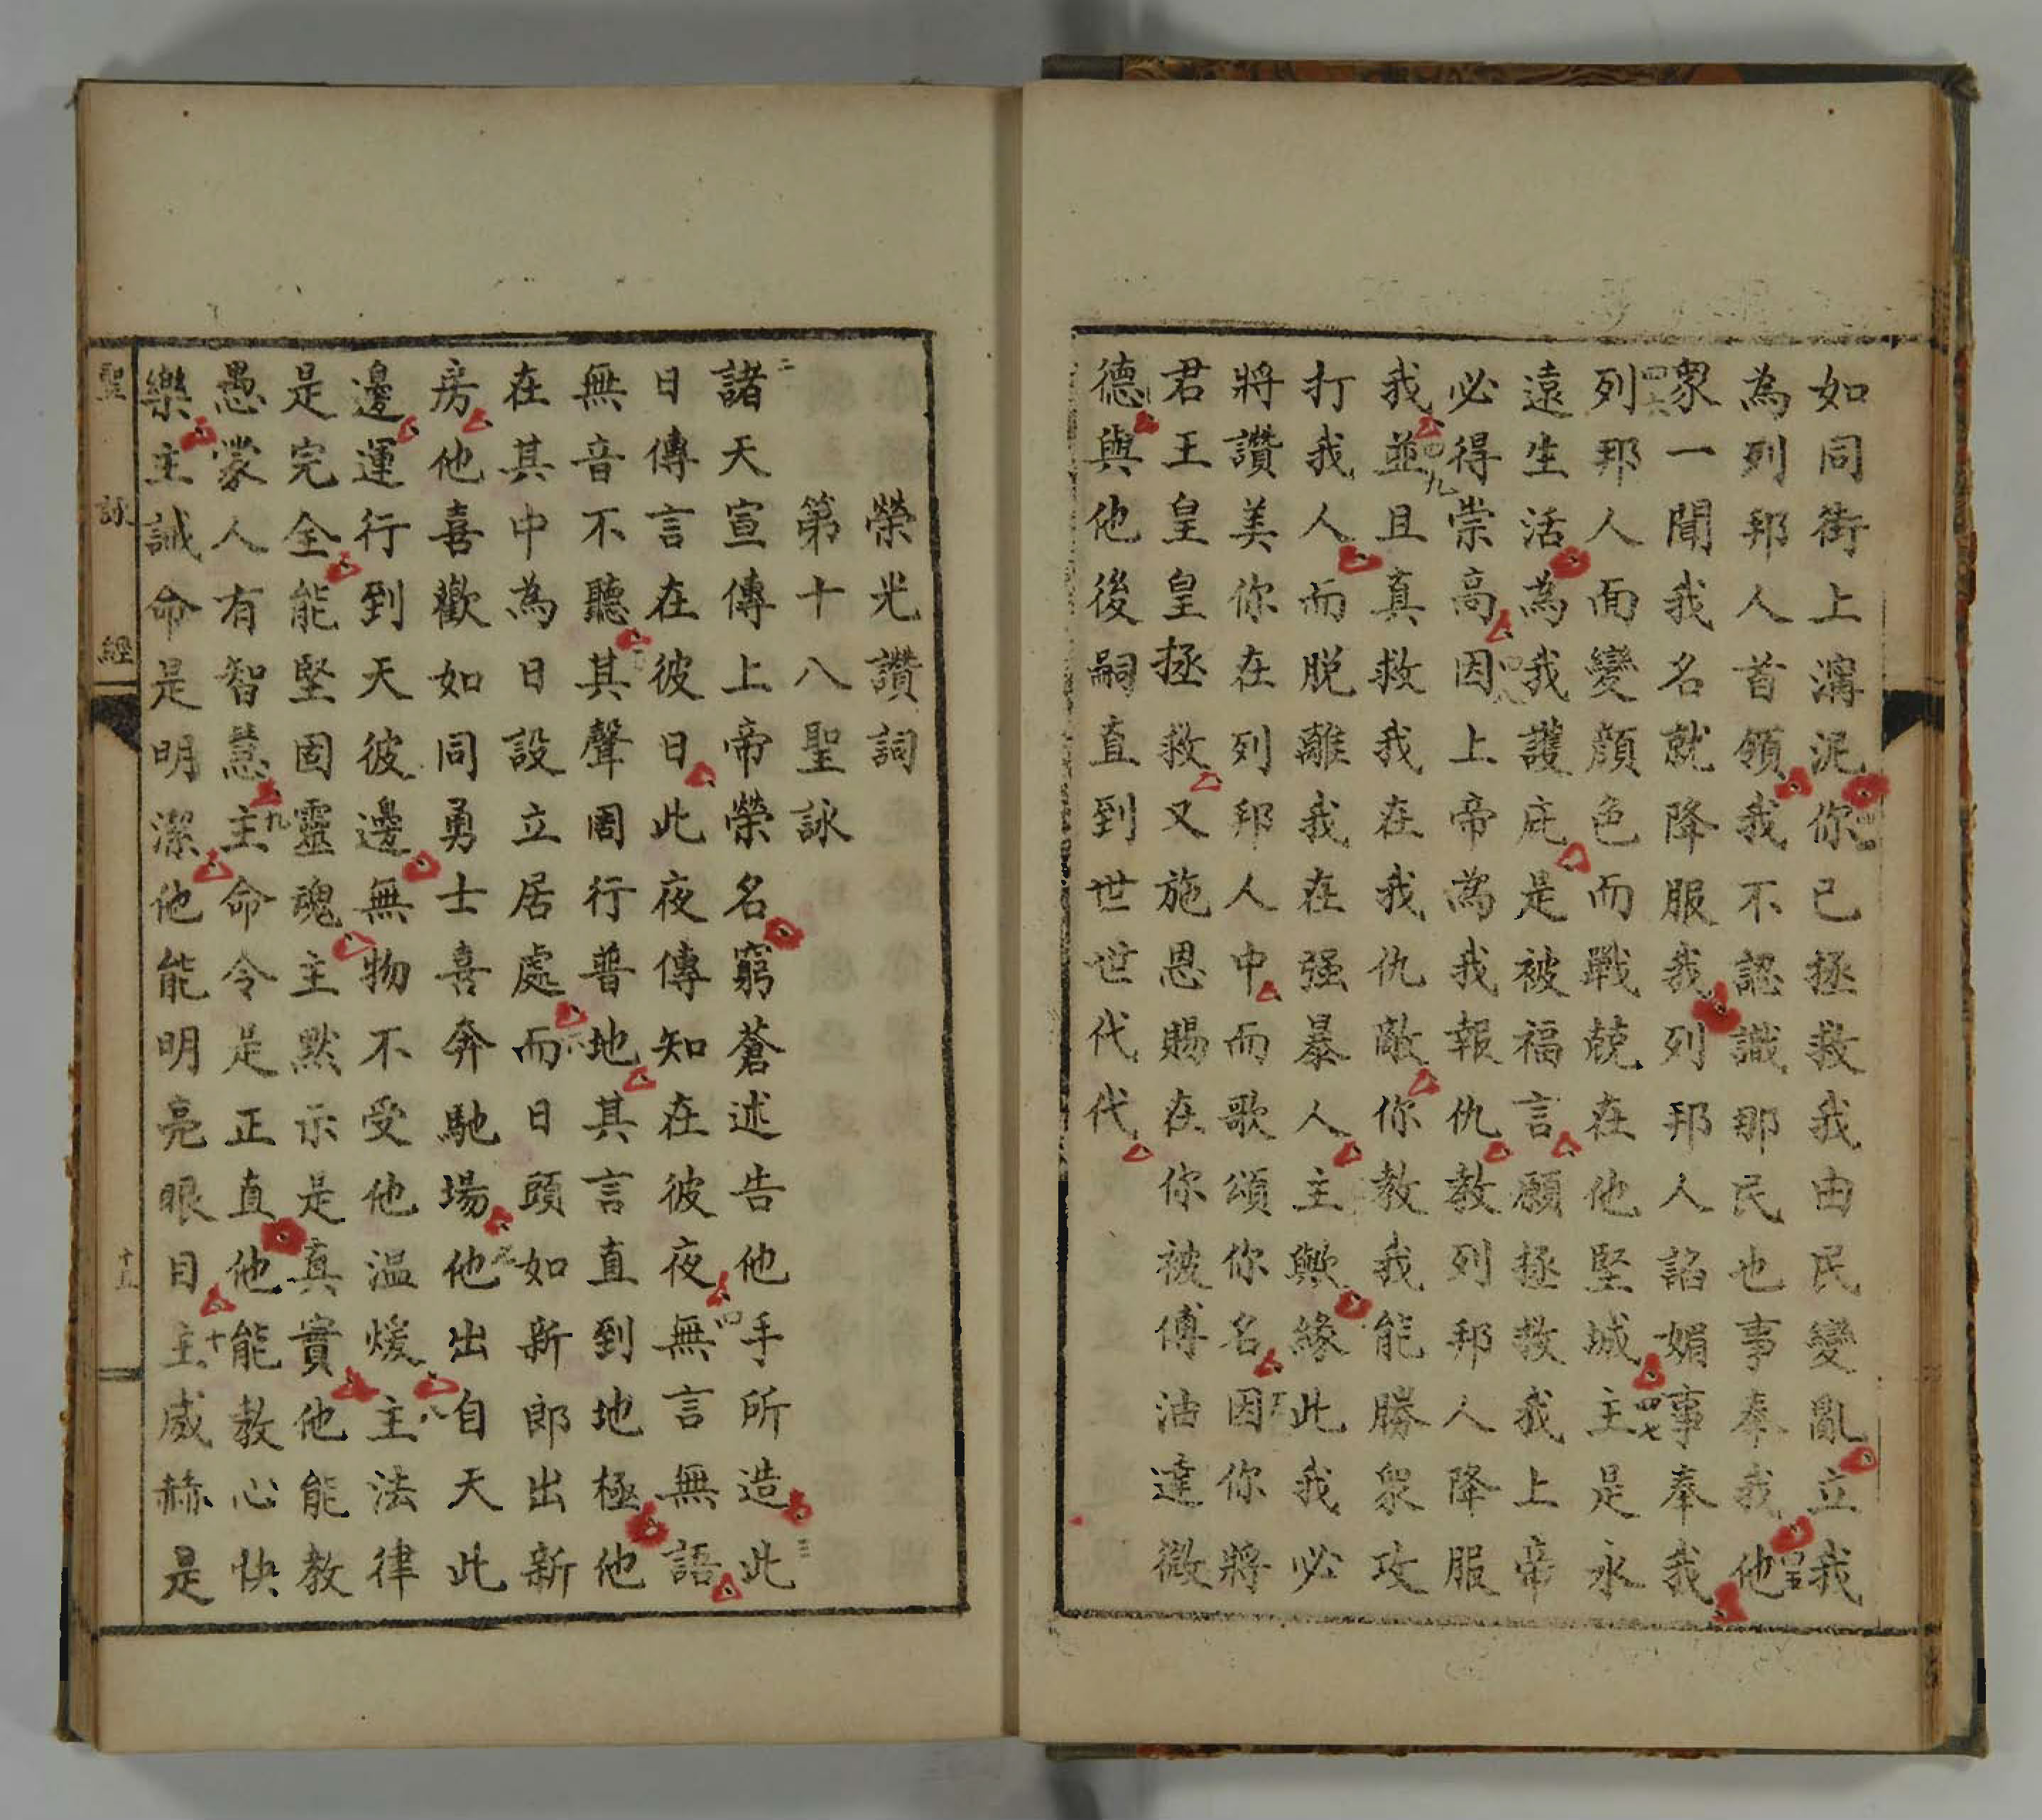 如同街上濘泥你已拯救我由民變亂立我
為列邦人首領我不認識那民也事奉我他
衆一聞我名就降服我列邦人諂媚事奉我
列邦人面變顏色而戰兢在他堅城主是永
遠生活為我護庇是被福言願拯救我上帝
必得崇高因上帝為我報仇教列邦人降服
我並且真救我在我仇敵你教我能勝衆攻
打我人而脱離我在强暴人主歟緣此我必
將讚美你在列邦人中而歌頌你名因你將
君王皇皇拯救又施恩賜在你被傅油達微
德與他後嗣直到世世代代
榮光讚詞
第十八聖詠
二
諸天宣傳上帝榮名窮蒼述告他手所造三此
日傳言在彼日此夜傳知在彼夜四無言無語
無音不聽其聲周行普地其言直到地極他
在其中為日設立居處六而日頭如新郎出新
房他喜歡如同勇士喜奔馳場七他出自天此
邊運行到天彼邊無物不受他温煖八主法律
是完全能堅固靈魂主默示是真實他能教
愚蒙人有智慧九主命令是正直他能教心快
樂主誡命是明潔他能明亮眼目十主威赫是
聖詠經
十五